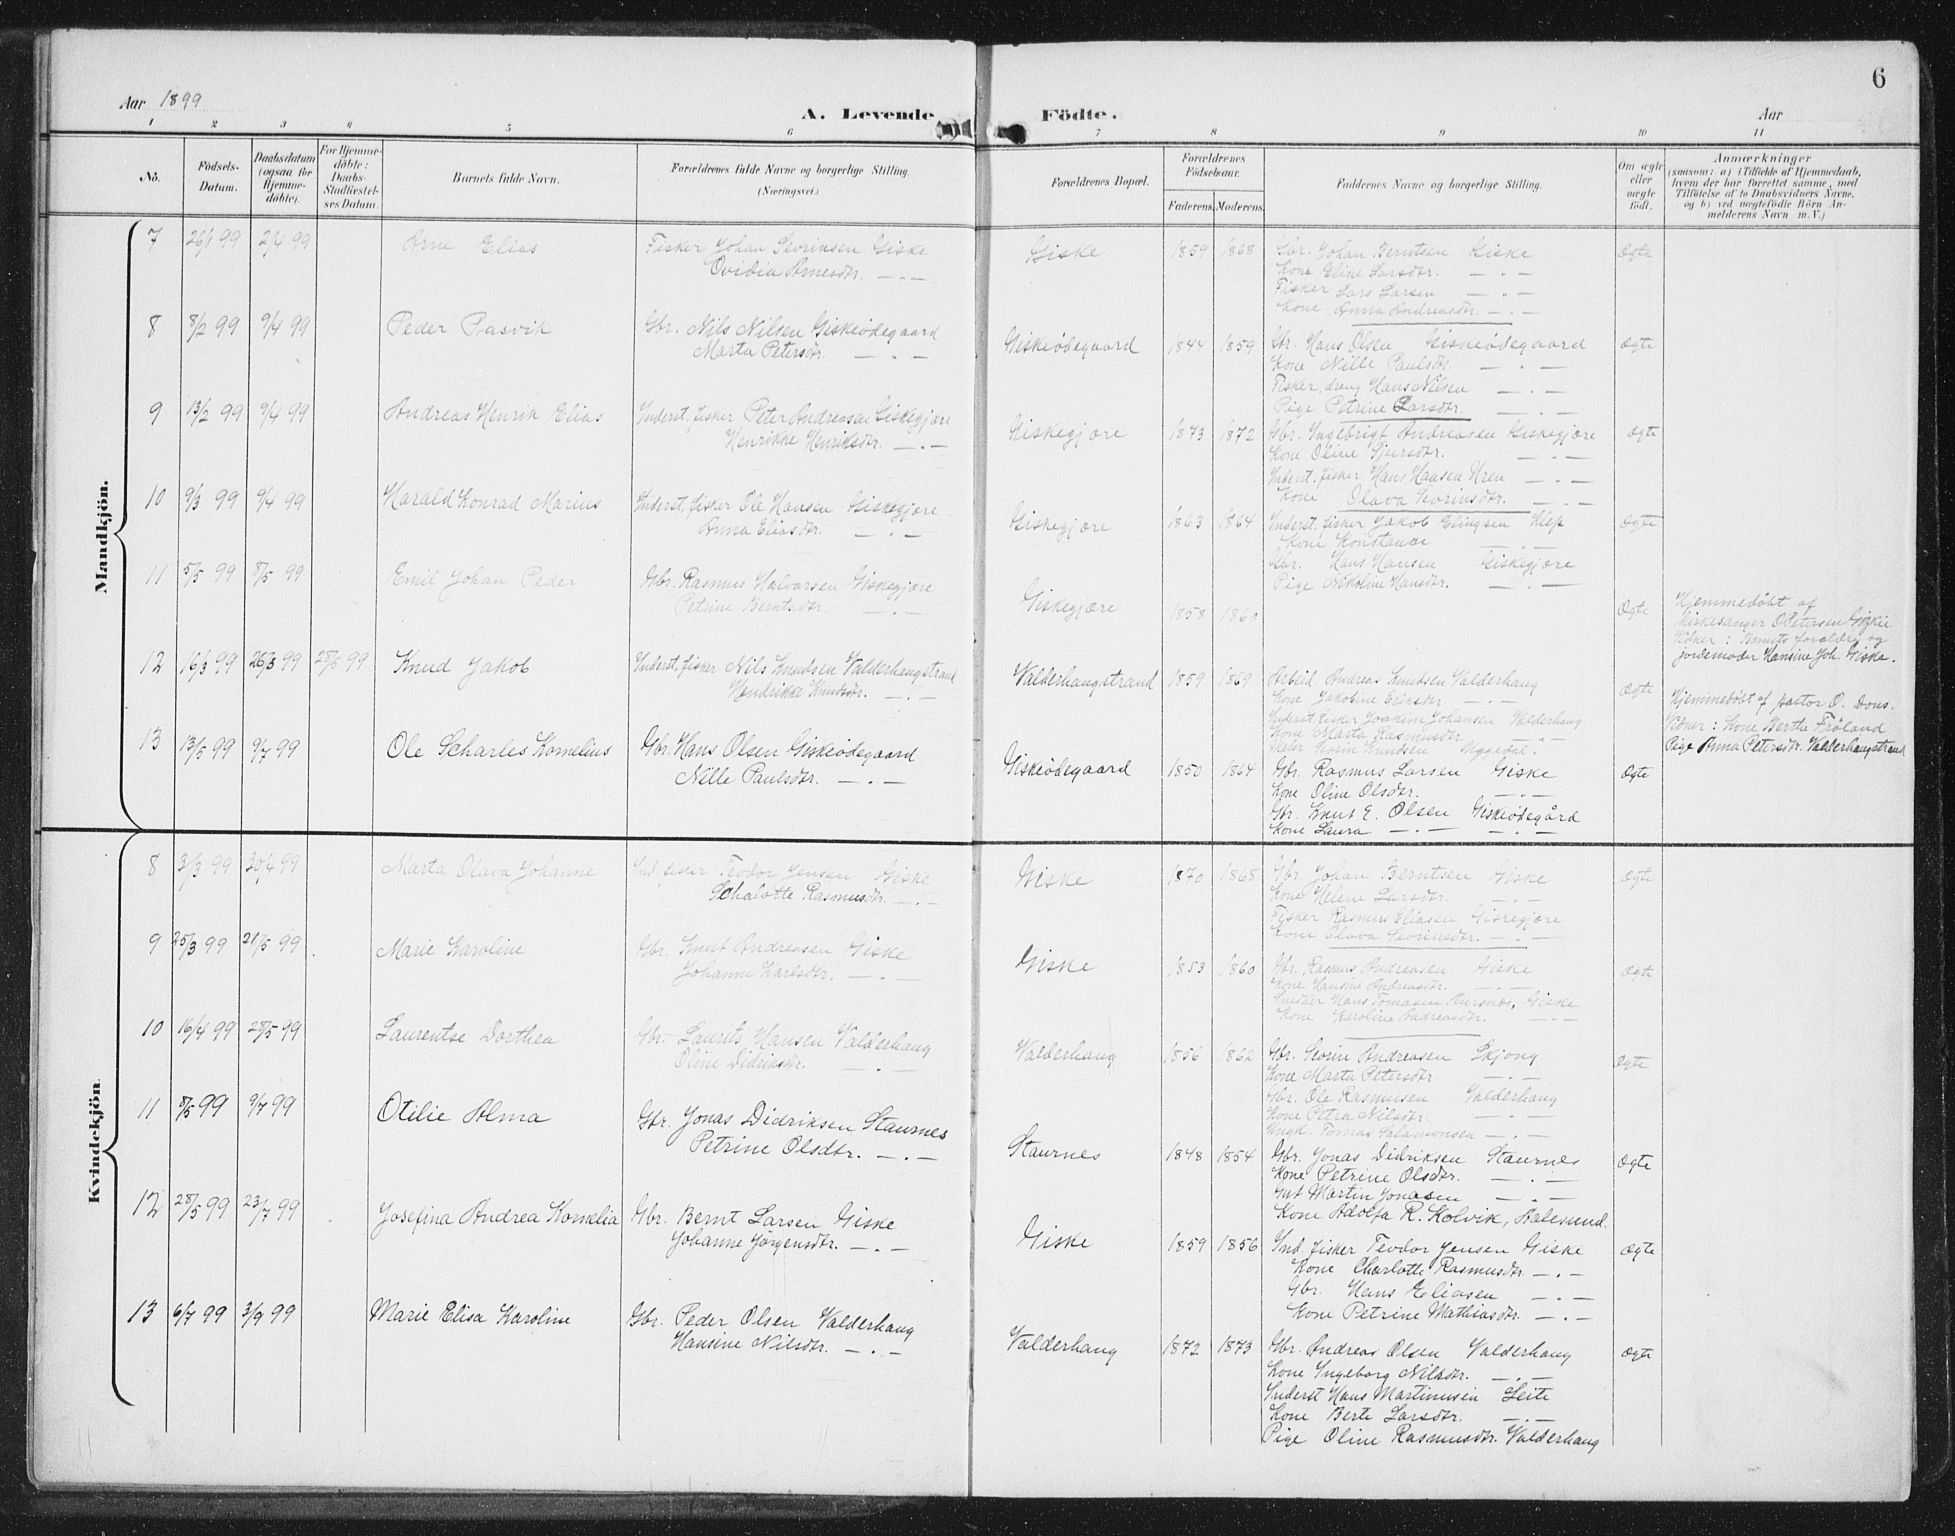 6
Aar 1899
A. Levende Födte.
Aar
1 2 3 4 5 6 7 8 9 10 11
No.
Födsels-Datum.
Daabsdatum (ogsaa for Hjemme-döbte).
For Hjemme-döbte: Daabs-Stadfæstel-ses Datum.
Barnets fulde Navn.
Forældrenes fulde Navne og borgerlige Stilling. (Næringsvei.)
Forældrenes Bopæl.
Forældrenes Födselsaar.
Faderens. Moderens.
Faddernes Navne og borgerlige Stilling.
Om ægte eller uægte födt.
Anmærkninger
(saasom: a) i Tilfælde af Hjemmedaab, hvem der har forrettet samme, med Tilföielse af to Daabsvidners Navne, og b) ved uægtefödte Börn An-melderens Navn m. V.)
Mandkjön.
7 26/1 99 2/4 99 Arne Elias Fisker Johan Sevrinsen Giske Giske 1859 1868 Gbr. Johan Berntsen Giske Ægte
Ovidia Arnesdtr. — . — Kone Eline Larsdtr. — . —
Fisker Lars Larsen — . —
Kone Anna Andreasdtr. — . —
8 8/2 99 9/4 99 Peder Pasvik Gbr. Nils Nilsen Giskeödegaard Giskeödegaard 1844 1859 Gbr. Hans Olsen Giskeödegaard Ægte
Marta Petersdtr. — . — Kone Nille Paulsdtr. — . —
Fisker, dreng Hans Nilsen — . —
Pige Petrine Larsdtr — . —
9 13/2 99 9/4 99 Andreas Henrik Elias Inderst, fisker Peter Andreasen Giskegjære Giskegjære 1873 1872 Gbr. Ingebrigt Andreasen Giskegjære Ægte
Henrikke Henriksdtr. — . — Kone Oline Sjursdtr. — . —
Inderst. fisker Hans Hansen — . —
Kone Olava Sevrinsdtr. — . —
10 9/3 99 9/4 99 Harald Konrad Marius Inderst, fisker Ole Hansen Giskegjære Giskegjære 1863 1864 Inderst. fisker Jakob Elingsen Klep Ægte
Anna Eliasdtr. — . — Kone Konstanse — . —
Gbr. Hans Hansen Giskegjære
Pige Nikoline Hansdtr. — . —
11 5/5 99 8/5 99 Emil Johan Peder Gbr. Rasmus Halvorsen Giskegjære Giskegjære 1858 1860 Ægte Hjemmedöbt af
Petrine Berntsdtr. — . — Kirkesanger O. Petersen Giske
Vidner: Barnets forældre og
jordemoder Hansine Joh. Giske.
12 16/3 99 26/3 99 28/5 99 Knud Jakob Inderst, fisker Nils Knudsen Valderhaugstrand Valderhaugstrand 1859 1869 Arbeid. Andreas Knudsen Valderhaug Ægte Hjemmedöbt af pastor O. Dons.
Hendrikke Knudsdtr. — . — Kone Jakobine Eriksdtr. — . — Vidner: Kone Berthe Fröland
Inderst. Fisker Joakim Johansen Valderhaug Pige Anna Petersdtr. Valderhaugstrand
Kone Marta Rasmusdtr — . —
Maler Knudsen
13 13/5 99 9/7 99 Ole Scharles Kornelius Gbr. Hans Olsen Giskeödegaard Giskeödegaard 1850 1864 Gbr. Rasmus Larsen Giske Ægte
Nille Paulsdtr. — . — Kone Oline Olsdtr. — . —
Gbr. Knut E. Olsen Giskeödegård
Kone Laura — . — — . —
Kvindekjön.
8 3/3 99 30/4 99 Marta Olava Johanne Ind. fisker Teodor Jensen Giske Giske 1870 1868 Gbr. Johan Berntsen Giske Ægte
Schalotte Rasmusdtr. — . — Kone Helene Larsdtr. — . —
Fisker Rasmus Eliasen Giskegjære
Kone Olava Sevrinsdtr. — . —
9 25/3 99 21/5 99 Marie Karoline Gbr. Knut Andreasen Giske Giske 1853 1860 Gbr. Rasmus Andreasen Giske Ægte
Johanne Karlsdtr. — . — Kone Hansine Andreasdtr. — . —
Snedker Hans Tomasen Aursnes, Giske
Kone Karoline Andreasdtr. — . —
10 16/4 99 28/5 99 Laurentse Dorthea Gbr. Laurits Hansen Valderhaug Valderhaug 1856 1862 Gbr. Sevrin Andreasen Skjong Ægte
Oline Didriksdtr. — . — Kone Marta Petersdtr. — . —
Gbr. Ole Rasmusen Valderhaug
Kone Petra Nilsdtr. — . —
Ungk. Tomas Salamonsen — . —
11 8/5 99 9/7 99 Otilie Alma Gbr. Jonas Didriksen Staurnes Staurnes 1848 1854 Gbr. Jonas Didriksen Staurnes Ægte
Petrine Olsdtr. — . — Kone Petrine Olsdtr. — . —
Gut Martin Jonasen — . —
Kone Adolfa R. Kolvik, Aalesund.
12 28/5 99 23/7 99 Josefina Andrea Kornelia Gbr. Bernt Larsen Giske Giske 1859 1856 Ind. fisker Teodor Jensen Giske Ægte
Johanne Jörgensdtr. — . — Kone Charlotte Rasmusdtr. — . —
Gbr. Hans Eliasen — . —
Kone Petrine Mathiasdtr. — . —
13 6/7 99 3/9 99 Marie Elisa Karoline Gbr. Peder Olsen Valderhaug Valderhaug 1872 1873 Gbr. Andreas Olsen Valderhaug Ægte
Hansine Nilsdtr. — . — Kone Ingeborg Nilsdtr. — . —
Inderst Hans Martinusen Leite
Kone Berte Larsdtr. — . —
Pige Oline Rasmusdtr. Valderhaug